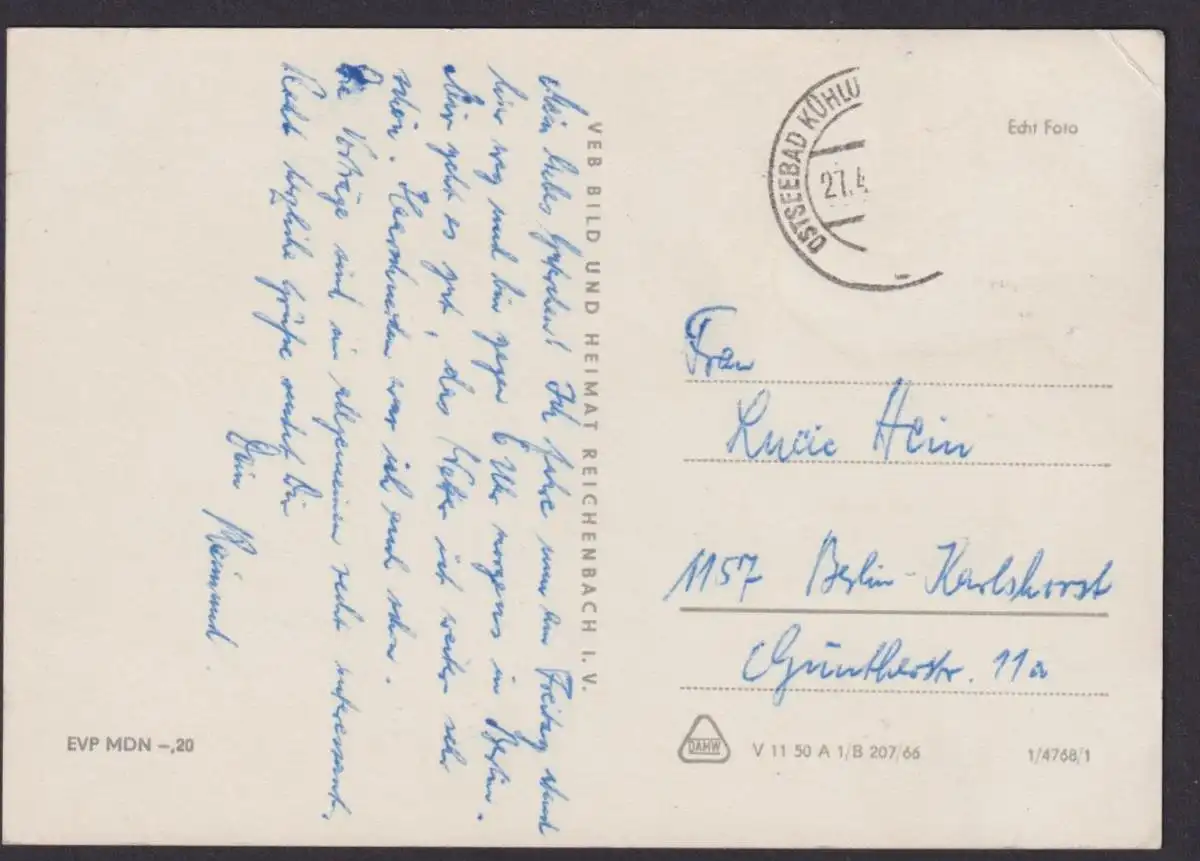 Mein liebes Hascherl! Ich fahre nun am Freitag abend
hier weg und bin gegen 6 Uhr morgens in Berlin.
Mir geht es gut, das Wetter ist weiter sehr
schön. Haarschneiden war ich auch schon.
Die Vorträge sind im allgemeinen recht interessant.
Recht herzliche Grüße sendet Dir
Dein Raimund.
VEB BILD UND HEIMAT REICHENBACH I. V.
EVP MDN –,20
OSTSEEBAD KÜHLU
27.4
Echt Foto
Frau
Lucie Hein
1157 Berlin-Karlshorst
Güntherstr. 11a
DAMW
V 11 50 A 1/B 207/66
1/4768/1